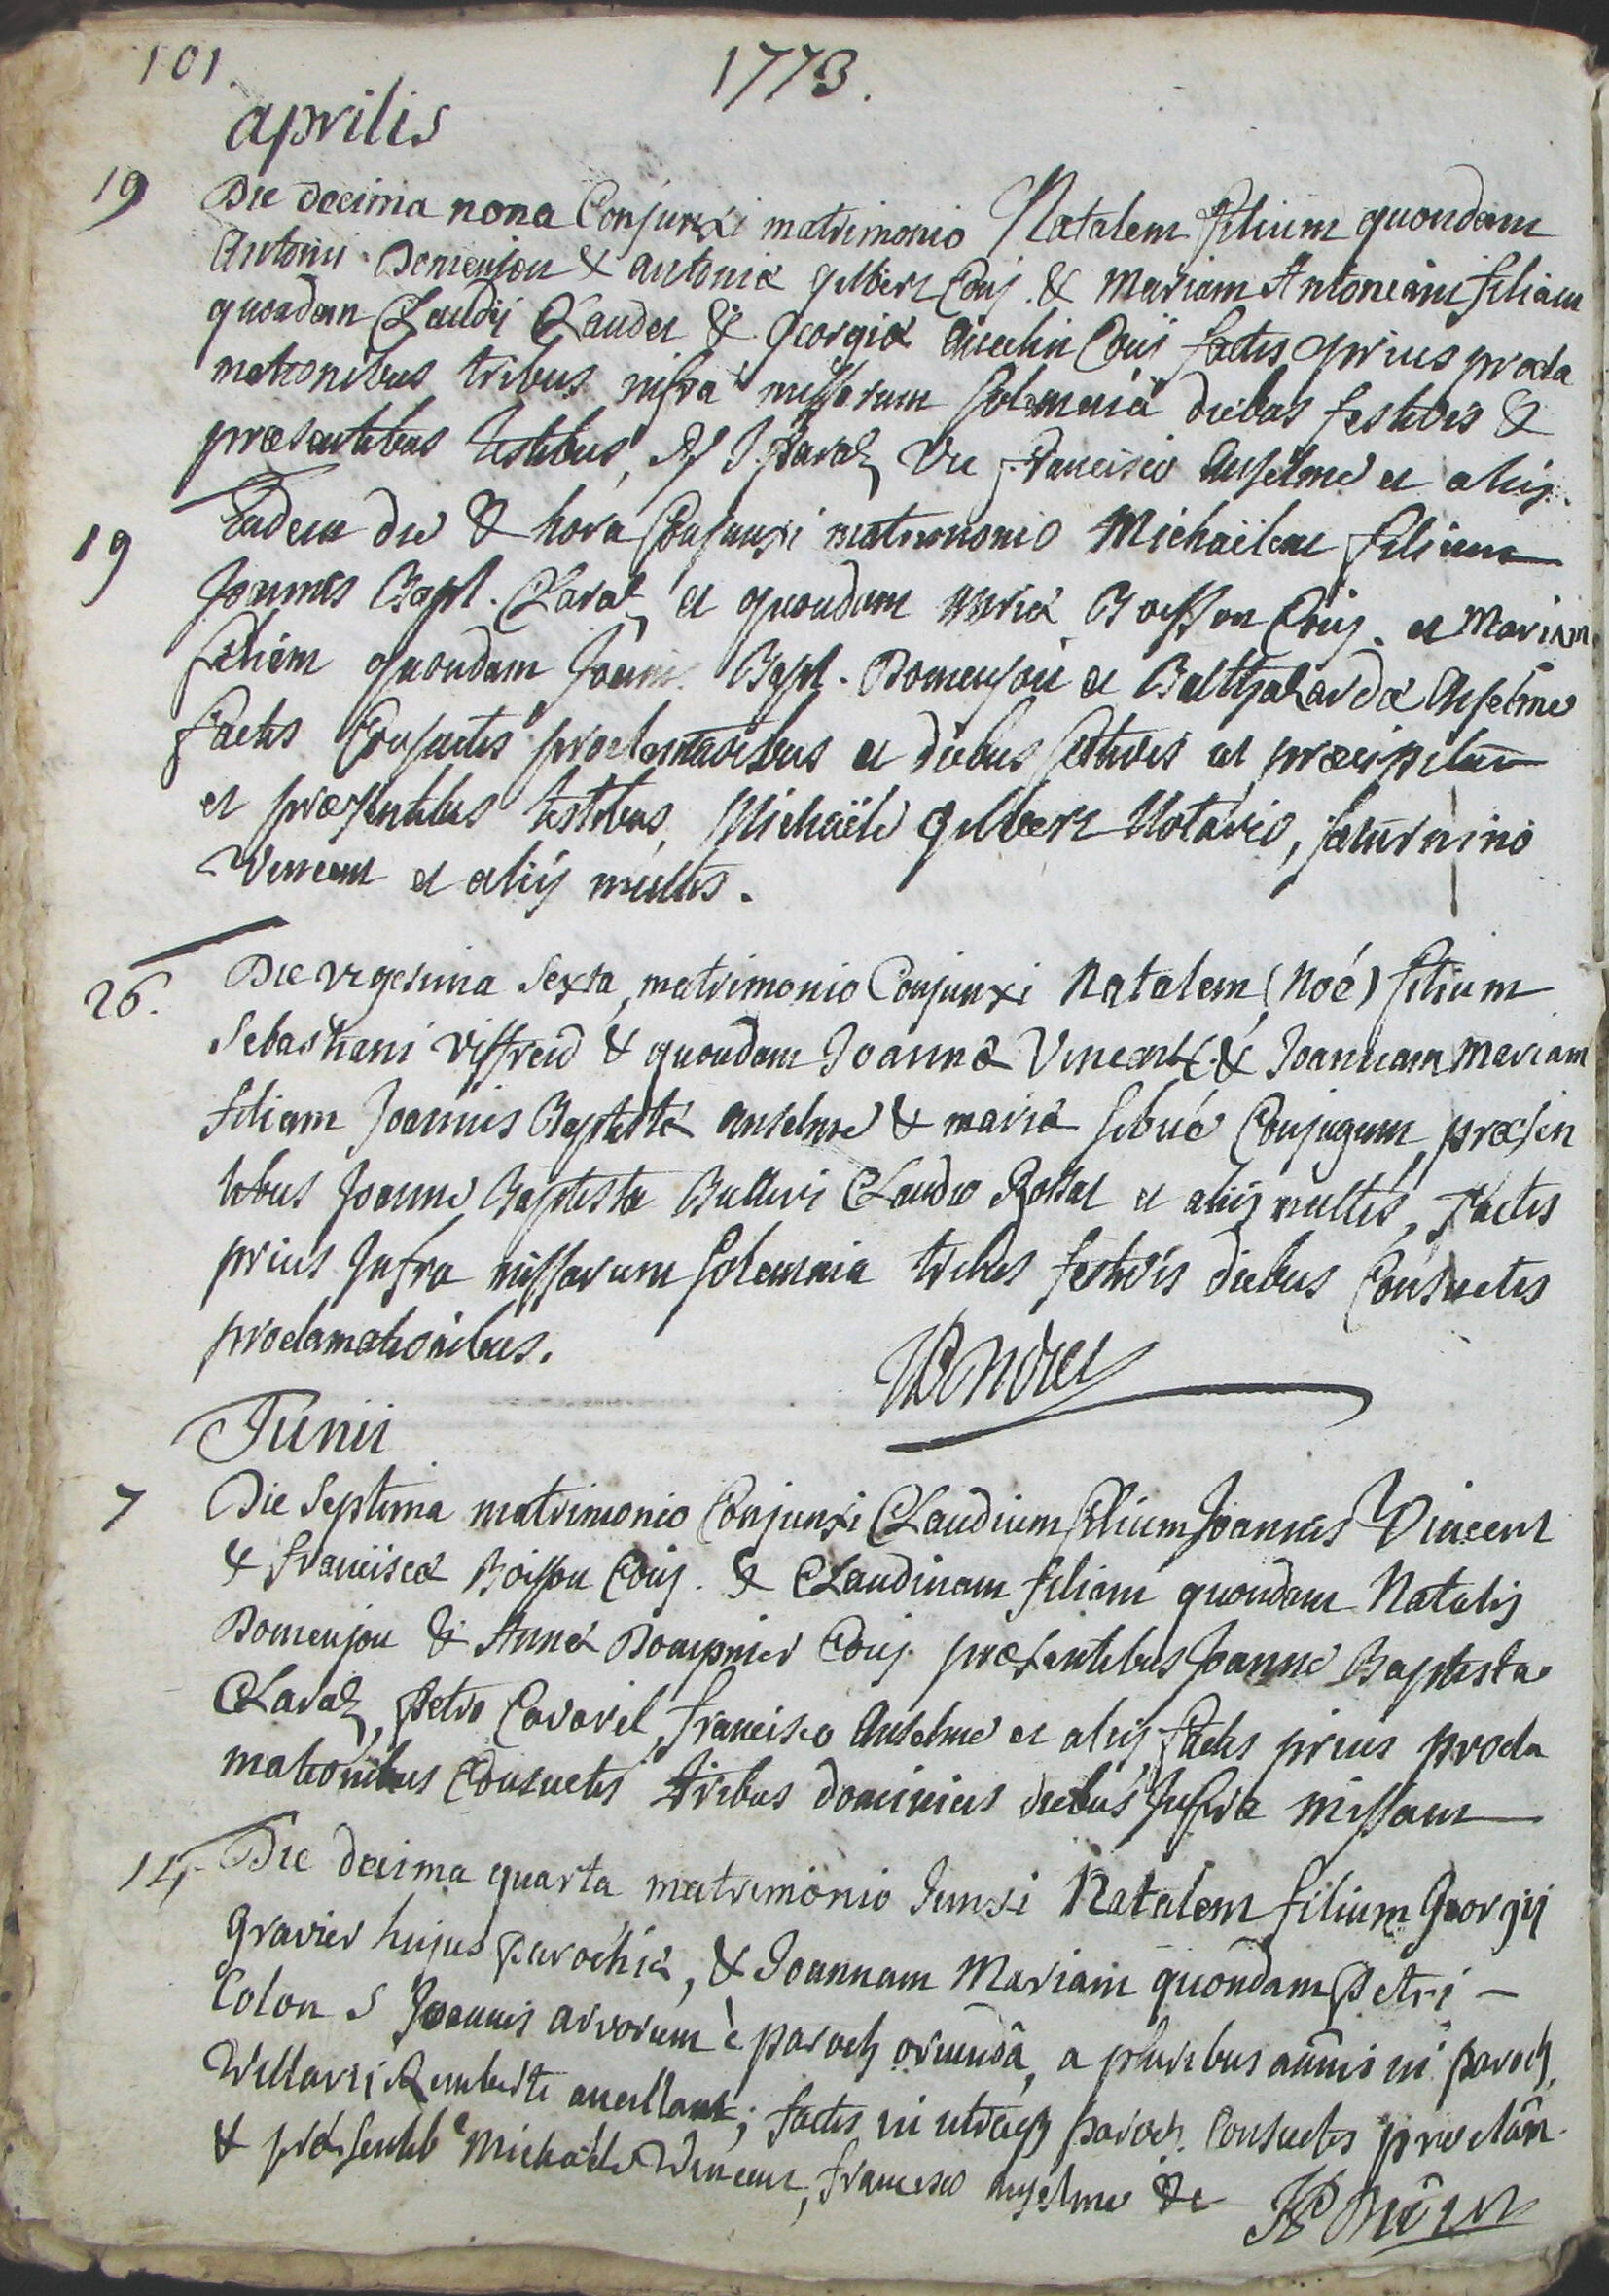 101. 1773.
aprilis
19 Die decima nona Conjunxi matrimonio Natalem filium quondam
Antonii Domenjon & antoniæ gilbert Conj. & Mariam Antoniam filiam
quondam Claudij Claudet & georgiæ Conj factis prius procla
mationibus tribus infra missarum solemnia diebus festivis &
præsentibus testibus, Francisco Anselme et alijs.
19 Eadem die & hora Conjunxi matrimonio Michaëlem filium
Joannis Bapt. Claraz et quondam Mariæ Boisson Conj. et Mariam
filiam quondam Joann. Bapt. Domenjon et Balthazardæ Anselme
factis Consuetis proclamationibus et diebus festivis
et præsentibus testibus, Michaële gilbert Notario, saturnino
Vincent et alijs multis.
26. Die vigesima sexta, matrimonio Conjunxi Natalem (Noé) filium
Sebastiani Viffreid & quondam Joannæ Vincent & Joannam mariam
filiam Joannis Baptistæ anselme & mariæ sibué Conjugum, præsen
tibus Joanne Baptista Butteri Claudio et alijs multis, factis
prius Infra missarum solemnia tribus festivis diebus Consuetis
proclamationibus.
Junii
7 Die Septima matrimonio Conjunxi Claudium filium Joannis Vincent
& franciscæ Boisson Conj. & Claudinam filiam quondam Natalis
Domenjon & Annæ Dompnier Conj. præsentibus Joanne Baptista
Claraz, petro Covarel, francisco Anselme et alijs factis prius procla
mationibus Consuetis tribus dominicis diebus Infra missam
14. Die decima quarta matrimonio Junxi Natalem filium Georgij
Gravier hujus parochiæ, & Joannam Mariam quondam Petri
Colon S Joannis arvorum è paroch oriunda, a pluribus annis in paroch,
Villarij ; factis in utraq paroch. Consuetis proclam.
& præsentib Michaële Vincent, francisco anselme &c